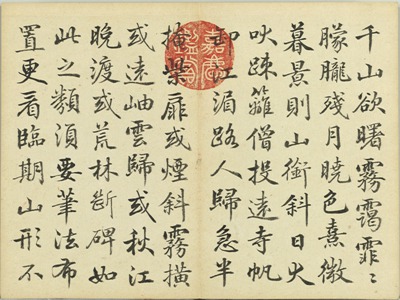 千山欲曙霧靄霏〻
朦朧殘月曉色熹微
暮景則山銜斜日犬
吠踈籬僧投遠寺帆
卸江湄路人歸急半
掩柴扉或煙斜霧橫
或遠岫雲歸或秋江
晚渡或荒林斷碑如
此之類須要筆法布
置更看臨期山形不